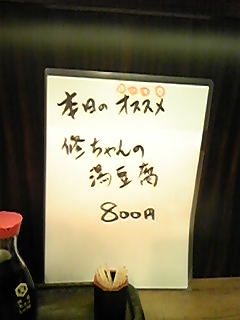 本日のオススメ
修ちゃんの
湯豆腐
800円